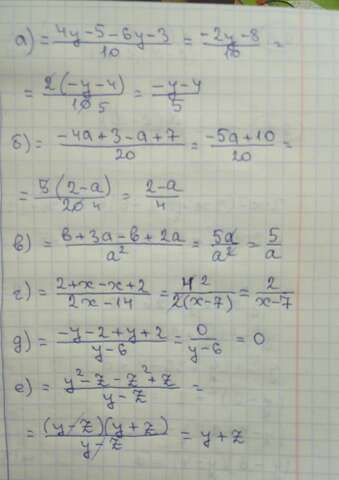 а) = (4y-5-6y-3)/10 = (-2y-8)/10 =
= 2(-y-4)/10 5 = (-y-4)/5
б) = (-4a+3-a+7)/20 = (-5a+10)/20 =
= 5(2-a)/20 4 = (2-a)/4
в) = (b+3a-b+2a)/a² = 5a/a² = 5/a
г) = (2+x-x+2)/(2x-14) = 4 2/2(x-7) = 2/(x-7)
д) = (-y-2+y+2)/(y-6) = 0/(y-6) = 0
е) = (y²-z-z²+z)/(y-z) =
= (y-z)(y+z)/(y-z) = y+z